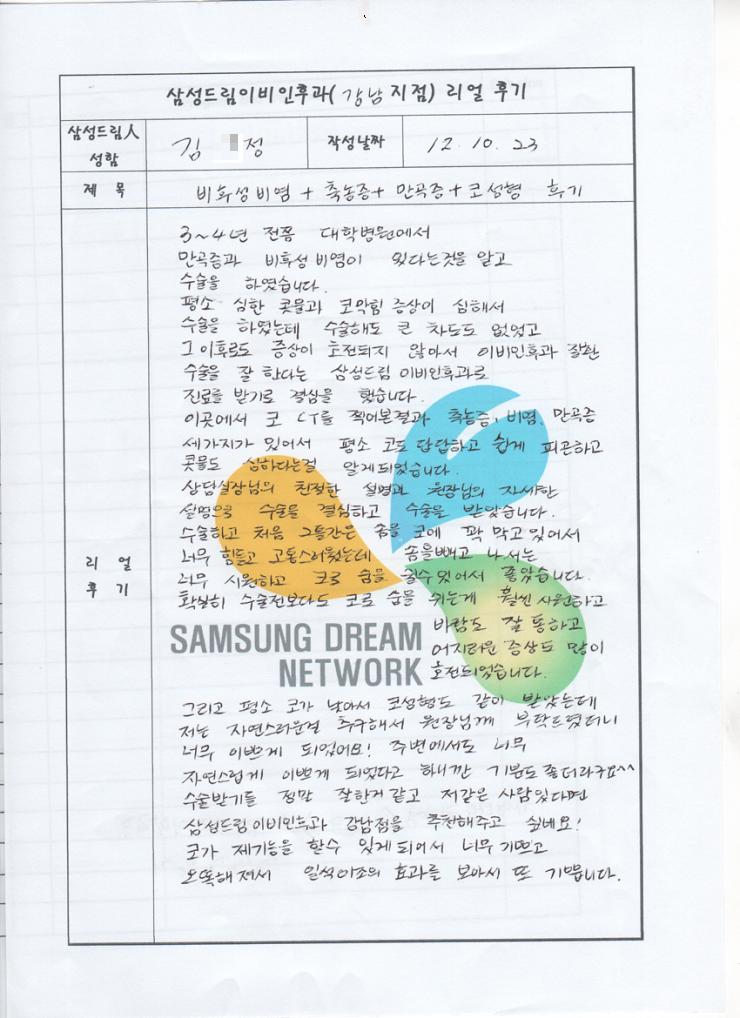 삼성드림이비인후과(강남지점) 리얼 후기
삼성드림人 성함
김 정
작성날짜
12. 10. 23
제 목
비후성비염 + 축농증 + 만곡증 + 코성형 후기
리 얼 후 기
3~4년 전쯤 대학병원에서
만곡증과 비후성 비염이 있다는것을 알고
수술을 하였습니다.
평소 심한 콧물과 코막힘 증상이 심해서
수술을 하였는데 수술해도 큰 차도도 없었고
그 이후로도 증상이 호전되지 않아서 이비인후과 질환
수술을 잘 한다는 삼성드림 이비인후과로
진료를 받기로 결심을 했습니다.
이곳에서 코 CT를 찍어본결과 축농증, 비염, 만곡증
세가지가 있어서 평소 코도 답답하고 쉽게 피곤하고
콧물도 심하다는걸 알게되었습니다.
상담실장님의 친절한 설명과 원장님의 자세한
설명으로 수술을 결심하고 수술을 받았습니다.
수술하고 처음 그틀간은 솜을 코에 꽉 막고있어서
너무 힘들고 고통스러웠는데 솜을빼고 나서는
너무 시원하고 코로 숨을 쉴수있어서 좋았습니다.
확실히 수술전보다도 코로 숨을 쉬는게 훨씬 시원하고
바람도 잘 통하고
어지러운 증상도 많이
호전되었습니다.
SAMSUNG DREAM
NETWORK
그리고 평소 코가 낮아서 코성형도 같이 받았는데
저는 자연스러운걸 추구해서 원장님께 부탁드렸더니
너무 이쁘게 되었어요! 주변에서도 너무
자연스럽게 이쁘게 되었다고 하니깐 기분도 좋더라구요^^
수술받기를 정말 잘한거같고 저같은 사람있다면
삼성드림이비인후과 강남점을 추천해주고 싶네요!
코가 제기능을 할수 있게되어서 너무 기쁘고
오똑해져서 일석이조의 효과를 보아서 또 기쁩니다.